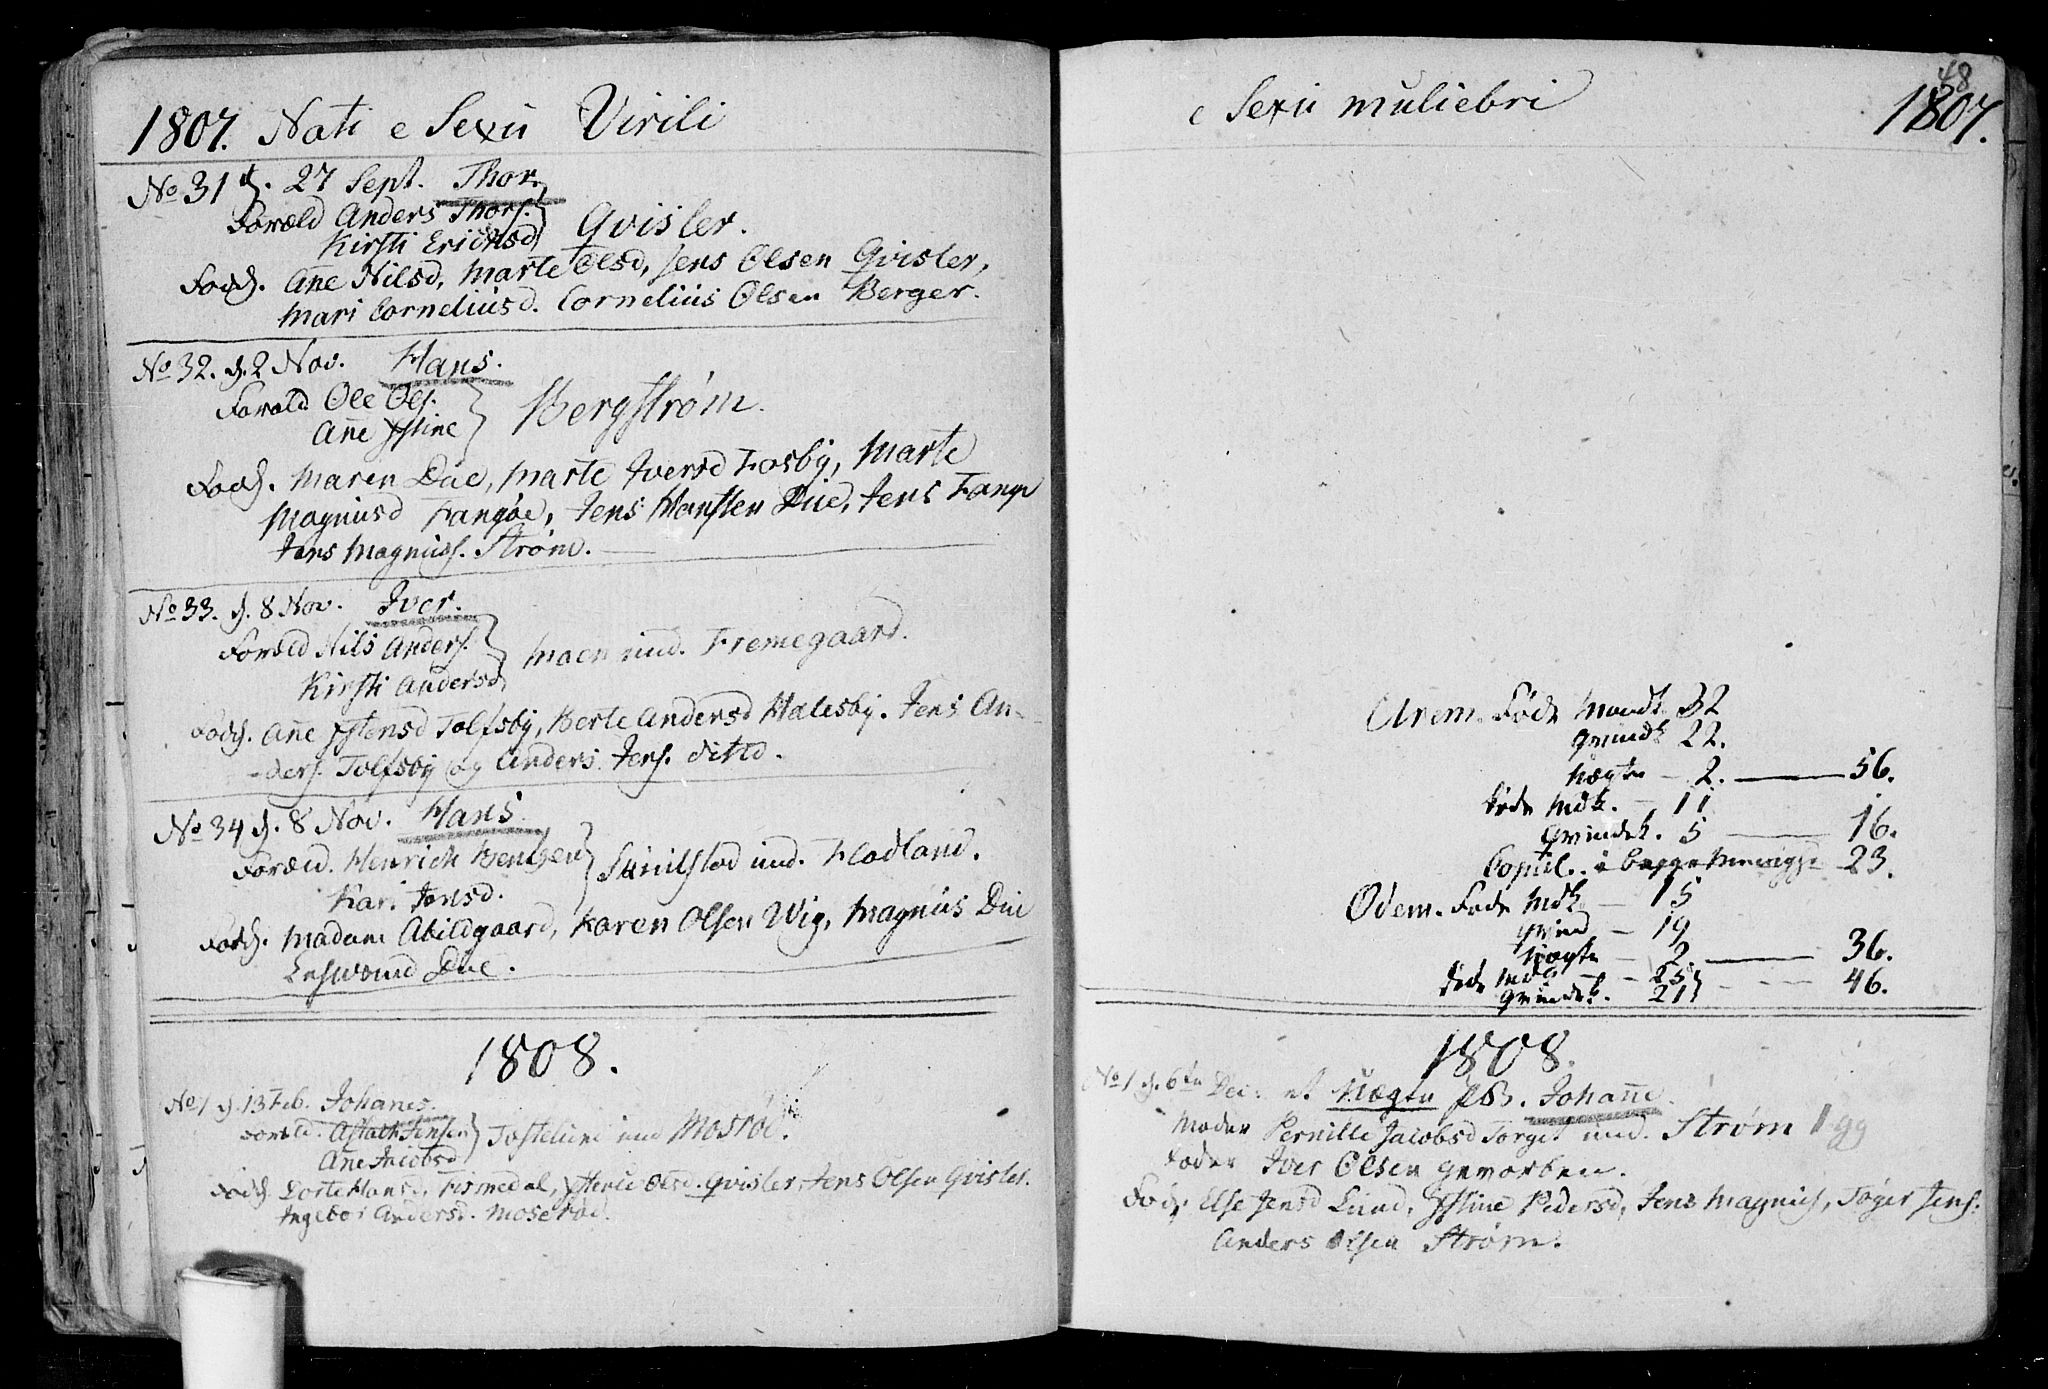 1807. Nati e Sexu Virili
No 31 d. 27 Sept. Thor.
Foræld Anders Thors.
Kirsti Ericksd
Qvisler.
Fadd. Ane Nilsd, Marte Olsd, Jens Olsen Qvisler,
Mari Corneliusd. Cornelius Olsen Berger.
No 32. d. 2 Nov. Hans.
Foræld Ole Ols.
Ane Jstine
Bergstrøm.
Fadd. Maren Due, Marte Iversd Fosby, Marte
Magnusd Fangøe, Jens Hansen Due, Jens Fangø
Jens Magnuss. Strøm.
No 33. d. 8 Nov. Iver.
Foræld Nils Anders.
Kirsti Andersd
Moen und. Fremegaard.
Fadd. Ane Jstensd Tolfsby, Berte Andersd Halesby. Jens An-
-ders. Tolfsby og Anders Jens. ditto.
No 34 d. 8 Nov. Hans.
Foræld. Henrich Bentzen
Kari Jensd.
und. Flodland.
Fadd. Madam Abildgaard, Karen Olsen Wig, Magnus Due
Due.
1808.
No 1 d. 13 Feb. Johanes.
Foræld. Aslach Jensen
Ane Jacobsd
und Mosrød.
Fadd. Dorte Hansd. Olsd. Qvisler, Jens Olsen Qvisler.
Ingebor Andersd. Moserød.
48
e Sexu muliebri 1807.
Arem. Føde Mandk 32
Qvindk 22.
Uægte - 2. 56.
Døde Mdk. - 11
Qvindek. 5 16.
Copul. i begge Menigh 23.
Ødem. Føde Mdk - 15
Qvind - 19
Uægte - 2. 36.
Døde Mdk - 25
Qvindek. 21 46.
1808.
No 1 d. 6te Dec: et Uægte PB. Johane.
Moder Pernille Jacobsd Torget und. Strøm
Fader Iver Olsen geworben.
Fad. Else Jensd Lund, Jstine Pedersd, Jens Magnus, Tøger Jens.
Anders Olsen Strøm.